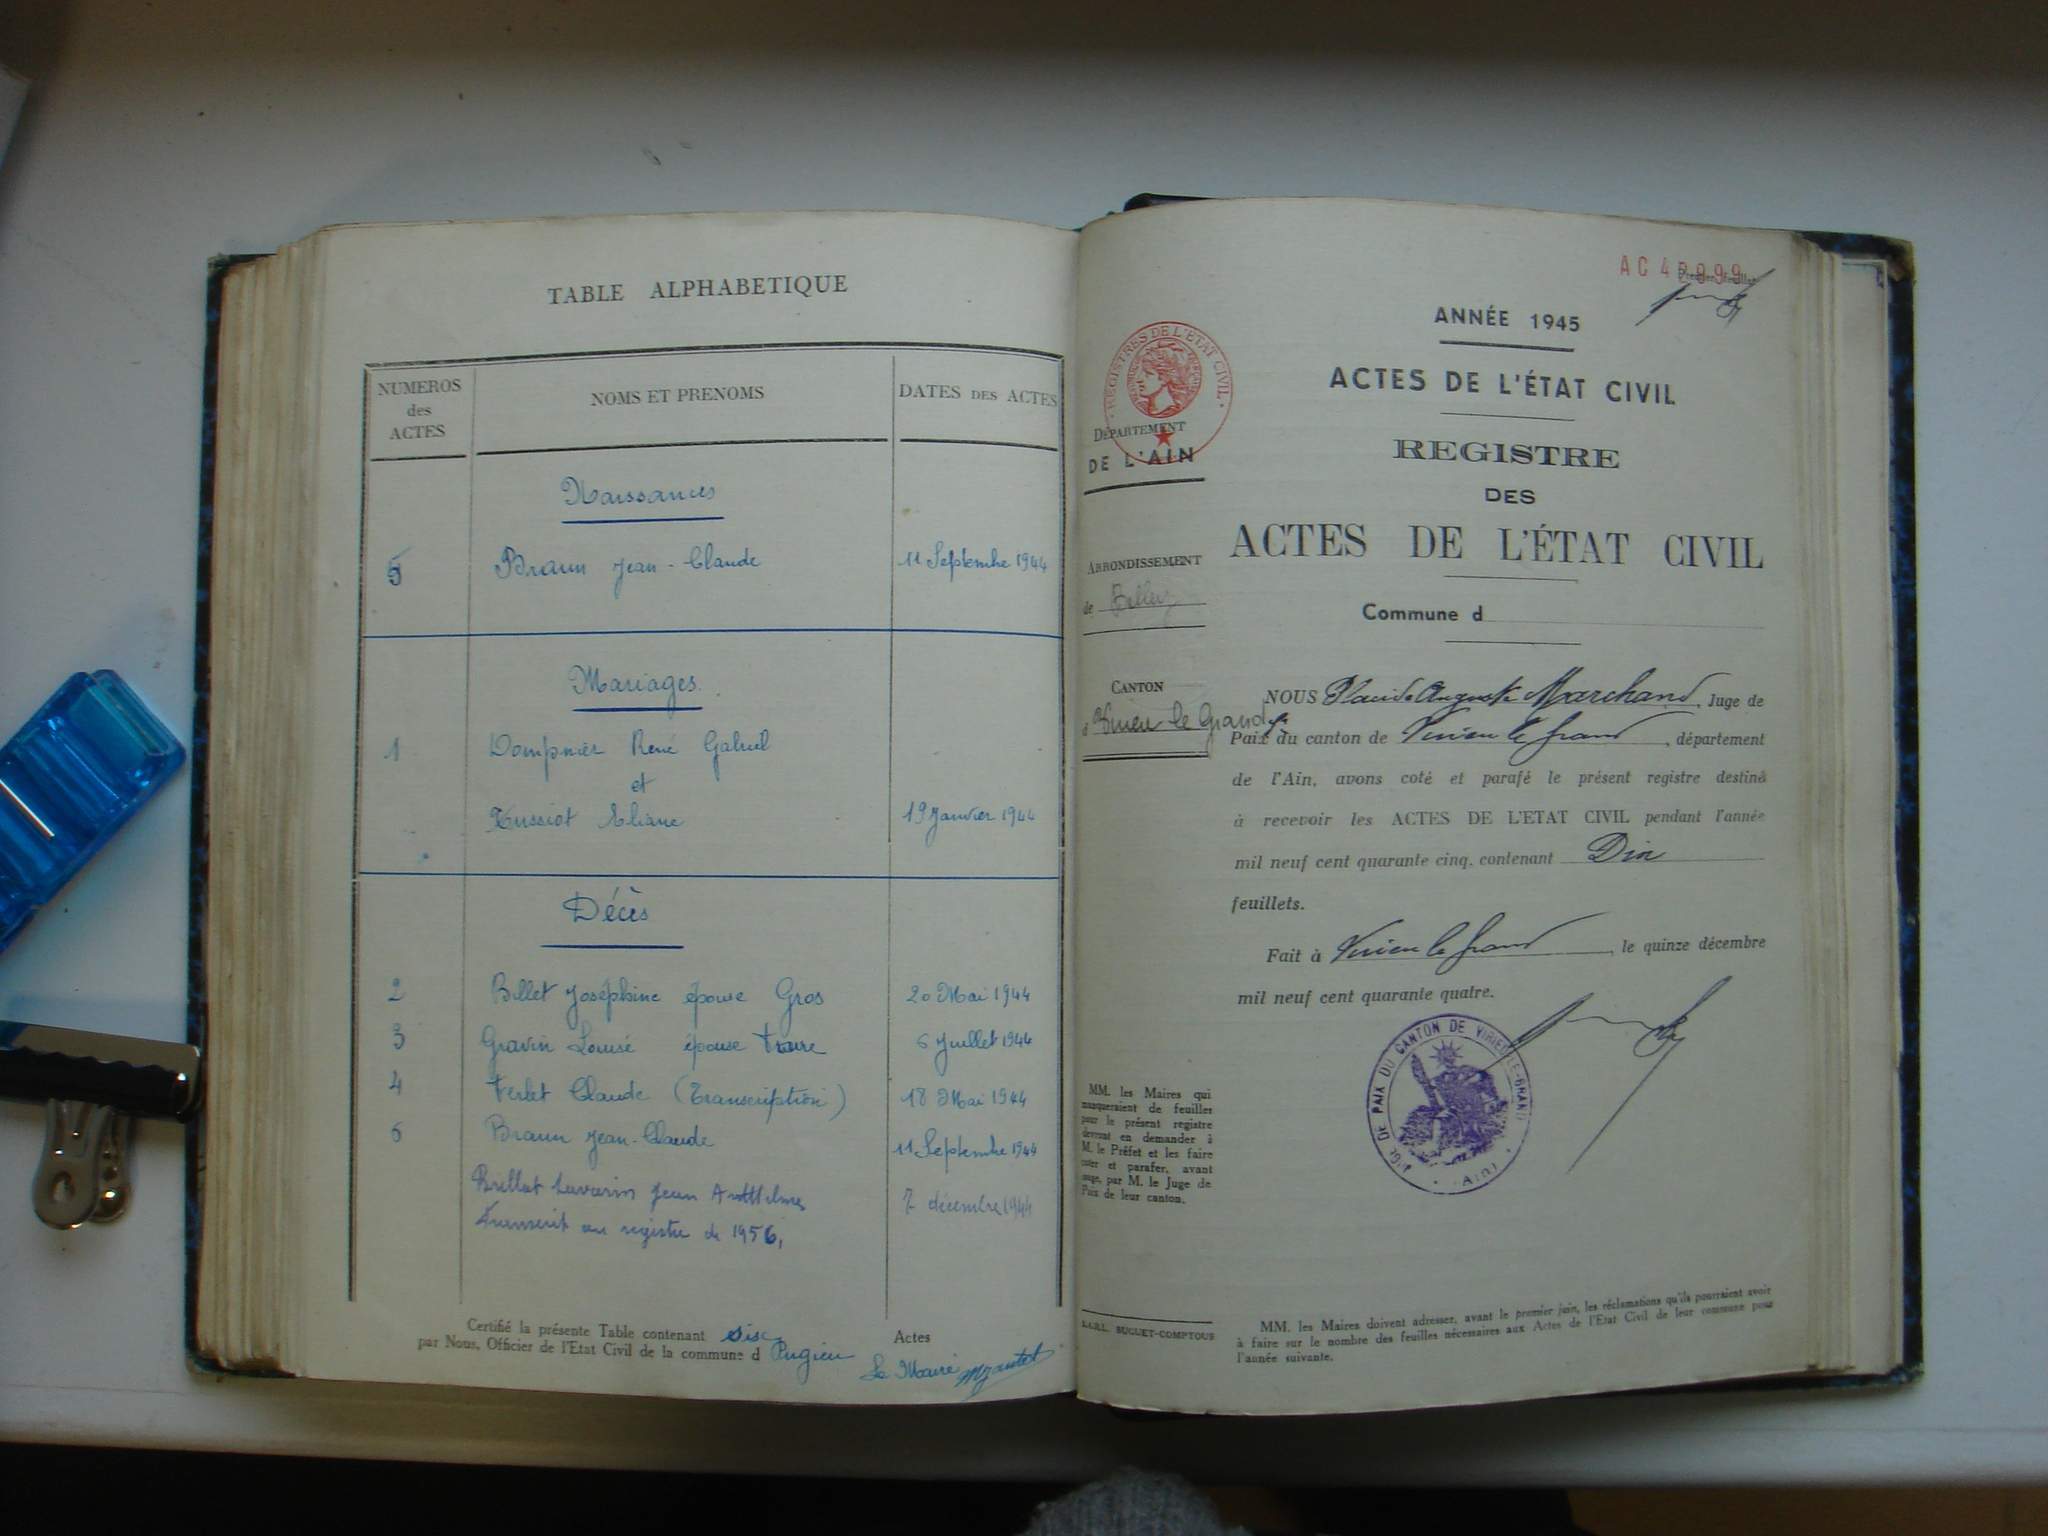 TABLE ALPHABETIQUE
NUMEROS
des
ACTES
NOMS ET PRENOMS
DATES DES ACTES
Naissances
5 Braun Jean-Claude 11 Septembre 1944
Mariages
1 Dompnier René Gabriel
et
Eliane 19 Janvier 1944
Décès
2 Billet Joséphine épouse Gros 20 Mai 1944
3 Gravin Louise épouse 6 Juillet 1944
4 Verlet Claude (Transcription) 18 Mai 1944
6 Braun Jean-Claude 11 Septembre 1944
Brillat Savarin Jean Anthelme 7 décembre 1944
Transcrit au registre de 1956,
Certifié la présente Table contenant six Actes
par Nous, Officier de l'Etat Civil de la commune d Pugieu
Le Maire
AC 4
ANNÉE 1945
ACTES DE L'ÉTAT CIVIL
REGISTRES DE L'ETAT CIVIL
DÉPARTEMENT
DE L'AIN
REGISTRE
DES
ACTES DE L'ÉTAT CIVIL
ARRONDISSEMENT
de Belley
Commune d
CANTON
d Virieu le Grand
NOUS Placide Auguste Marchand, Juge de
Paix du canton de Virieu le Grand, département
de l'Ain, avons coté et parafé le présent registre destiné
à recevoir les ACTES DE L'ETAT CIVIL pendant l'année
mil neuf cent quarante cinq, contenant Dix
feuillets.
Fait à Virieu le Grand, le quinze décembre
mil neuf cent quarante quatre.
JUGE DE PAIX DU CANTON DE VIRIEU-LE-GRAND
(AIN)
MM. les Maires qui
manqueraient de feuilles
pour le présent registre
devront en demander à
M. le Préfet et les faire
coter et parafer, avant
usage, par M. le Juge de
Paix de leur canton.
S.A.R.L. SUGUET-COMPTOUR
MM. les Maires doivent adresser, avant le premier juin, les réclamations qu'ils pourraient avoir
à faire sur le nombre des feuilles nécessaires aux Actes de l'Etat Civil de leur commune pour
l'année suivante.